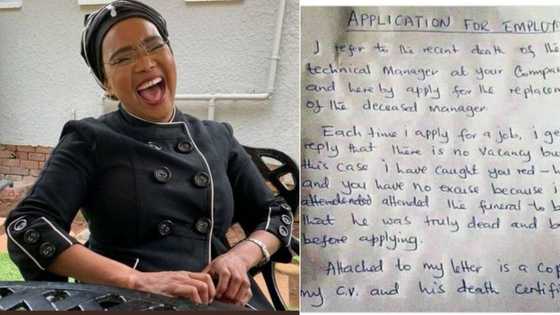 APPLICATION FOR EMPLO
I refer to the recent death of the
technical Manager at your Compan
and here by apply for the replace
of the deceased manager
Each time i apply for a job, i g
reply that there is no vacancy bu
this case i have caught you red - 
and you have no excuse because
attended the funeral to b
that he was truly dead and b
before applying.
Attached to my letter is a cop
my C.V. and his death Certifi